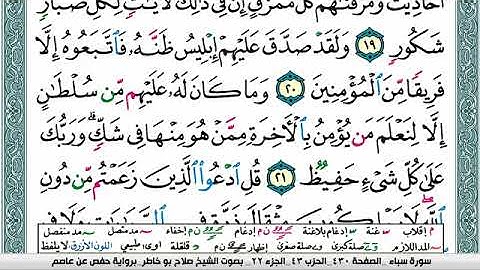 أَحَادِيثَ وَمَزَّقْنَٰهُمْ كُلَّ مُمَزَّقٍ إِنَّ فِى ذَٰلِكَ لَءَايَٰتٍ لِّكُلِّ صَبَّارٍ
شَكُورٍ ١٩ وَلَقَدْ صَدَّقَ عَلَيْهِمْ إِبْلِيسُ ظَنَّهُۥ فَٱتَّبَعُوهُ إِلَّا
فَرِيقًا مِّنَ ٱلْمُؤْمِنِينَ ٢٠ وَمَا كَانَ لَهُۥ عَلَيْهِم مِّن سُلْطَٰنٍ
إِلَّا لِنَعْلَمَ مَن يُؤْمِنُ بِٱلْءَاخِرَةِ مِمَّنْ هُوَ مِنْهَا فِى شَكٍّۗ وَرَبُّكَ
عَلَىٰ كُلِّ شَىْءٍ حَفِيظٌ ٢١ قُلِ ٱدْعُوا۟ ٱلَّذِينَ زَعَمْتُم مِّن دُونِ
م إقلاب غنة إدغام بلاغنة إدغام إخفاء مد متصل مد منفصل
المد اللازم صلة كبرى صلة صغرى إظهار قلقلة طبيعي اللون الأزرق لا يلفظ
سورة سباء .. الصفحة ٤٣٠ .. الحزب ٤٣ .. الجزء ٢٢ .. بصوت الشيخ صلاح بو خاطر .. برواية حفص عن عاصم